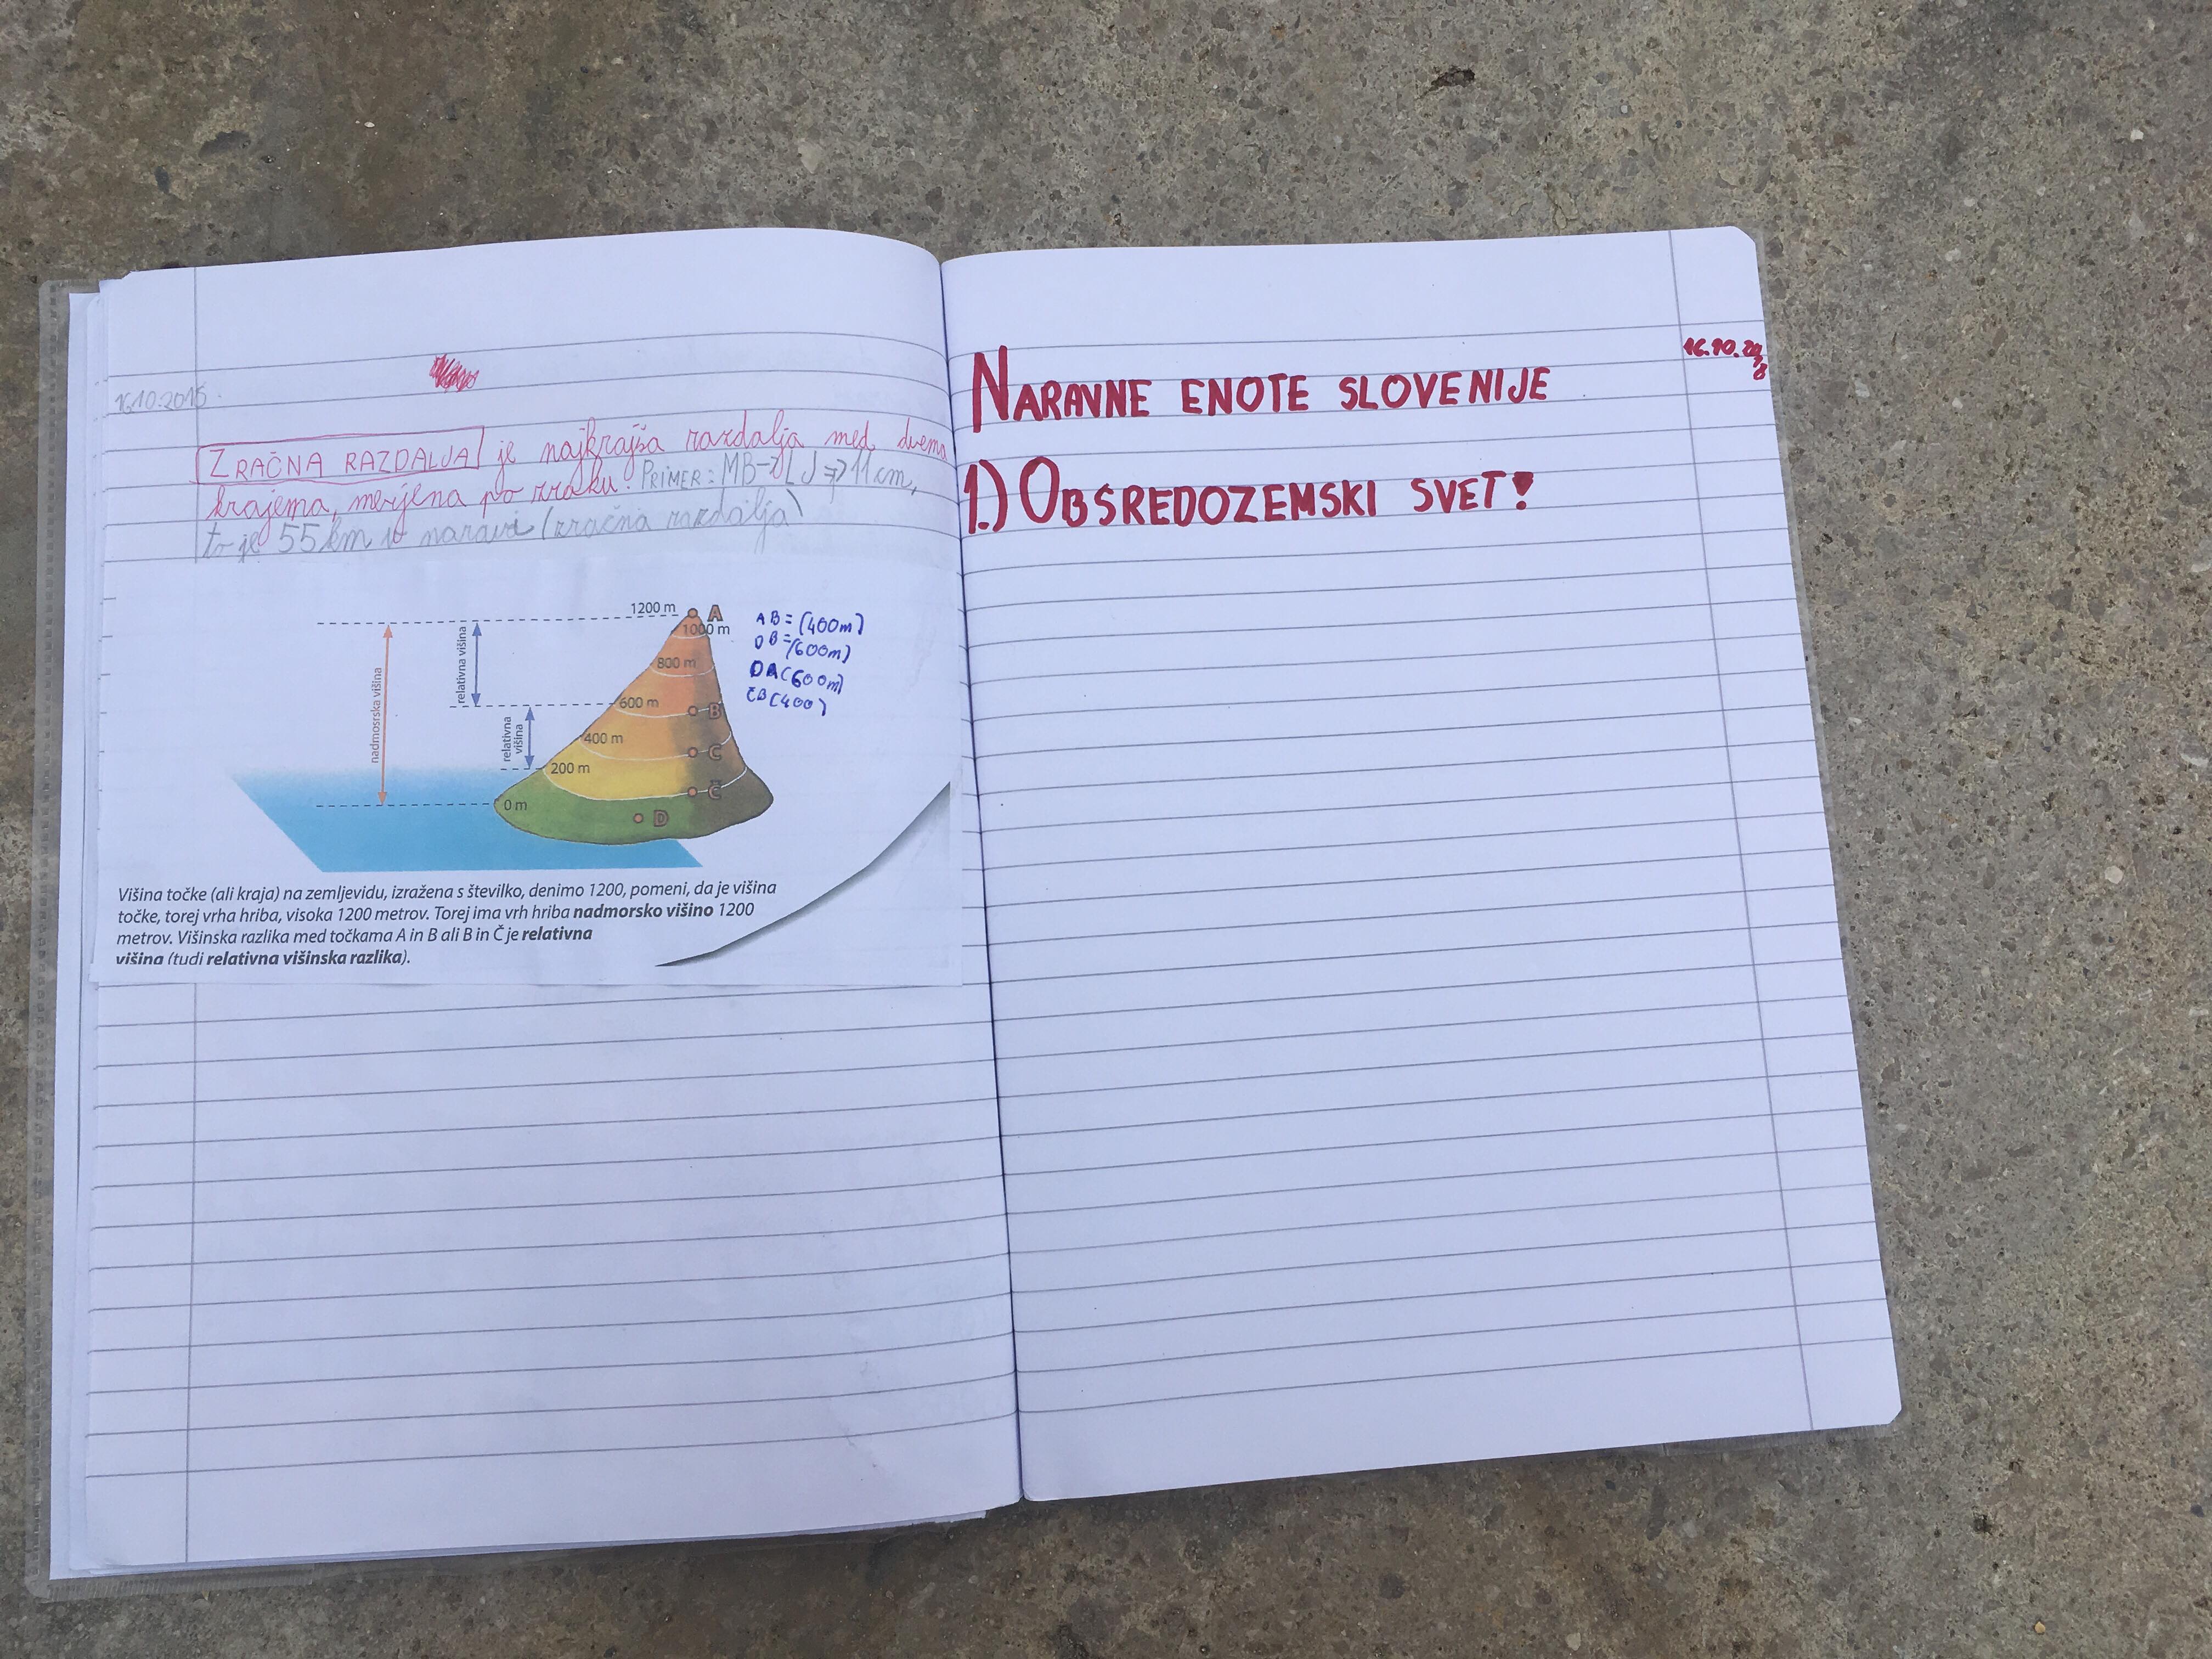 16.10.2018
ZRAČNA RAZDALJA je najkrajša razdalja med dvema
krajema, merjena po zraku. PRIMER: MB-LJ => 11 cm,
to je 55 km v naravi (zračna razdalja)
1200 m A
1000 m
800 m
600 m B
400 m C
200 m Č
0 m D
nadmosrska višina
relativna višina
relativna
višina
AB = (400m)
DB = (600m)
DA (600m)
ČB (400)
Višina točke (ali kraja) na zemljevidu, izražena s številko, denimo 1200, pomeni, da je višina
točke, torej vrha hriba, visoka 1200 metrov. Torej ima vrh hriba nadmorsko višino 1200
metrov. Višinska razlika med točkama A in B ali B in Č je relativna
višina (tudi relativna višinska razlika).
16.10.2018
NARAVNE ENOTE SLOVENIJE
1.) OBSREDOZEMSKI SVET!